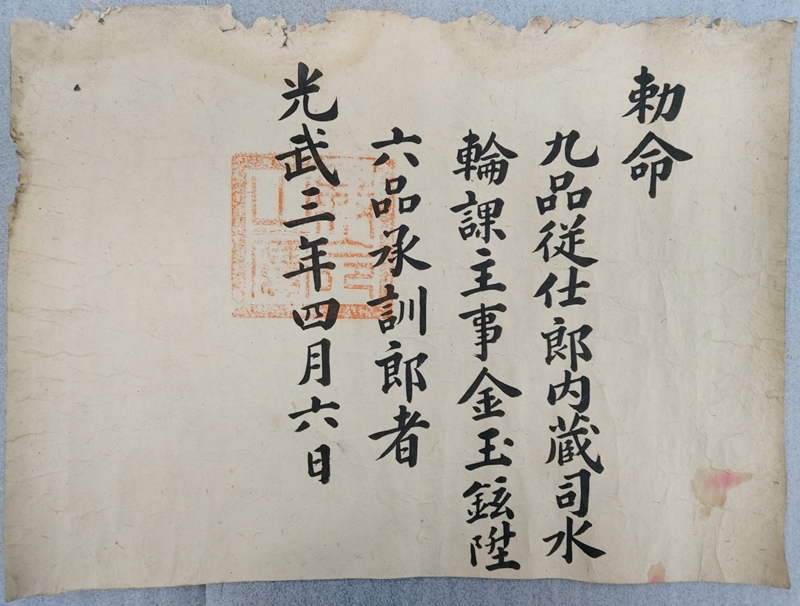 勅命
九品従仕郎内蔵司水
輪課主事金玉鉉陞
六品承訓郎者
光武三年四月六日